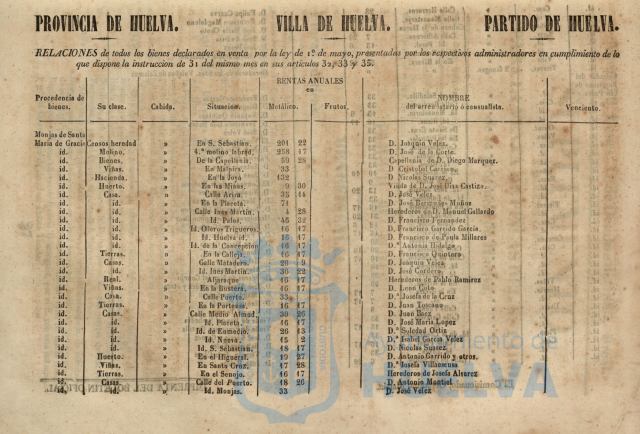 PROVINCIA DE HUELVA. VILLA DE HUELVA. PARTIDO DE HUELVA.
RELACIONES de todos los bienes declarados en venta por la ley de 1.º de mayo, presentadas por los respectivos administradores en cumplimiento de lo
que dispone la instruccion de 31 del mismo mes en sus artículos 32, 33 y 35.
RENTAS ANUALES
en
Procedencia de bienes. Su clase. Cabida. Situacion. Metálico. Frutos. NOMBRE del arrendatario ó censualista. Venciento.
Monjas de Santa
Maria de Gracia Censos heredad » En S. Sebastian. 201 22 D. Joaquin Velez.
id. Molino. » 4.ª molino labrad. 258 17 D. José de la Corte.
id. Bienes. » De la Capellanía. 59 28 Capellanía de D. Diego Marquez.
id. Viñas. » En Malpica. 33 D. Cristobal
id. Hacienda. » En la Joya 132 D. Nicolas Suarez.
id. Huerto. » En las Minas. 9 30 Viuda de D. José Diaz
id. Casa. » Calle 33 44 D. José Velez.
id. id. » En la Placeta. 74 D. José Bermudez Muñoz
id. id. » Calle Ines Martin. 4 28 Herederos de D. Manuel Gallardo
id. id. » Id. Palos. 45 32 D. Francisco Fernandez
id. id. » Id. Oleros Trigueros. 16 17 D. Francisco Garrido García.
id. id. » Id. Huelva id. 16 17 D. Francisco de Paula Millares
id. id. » Id. de la Concepcion. 46 17 D.ª Antonia Hidalgo
id. Tierras. » En la Calleja. 16 17 D. Francisco Quintero
id. Casas. » Calle Matadero. 26 9 D. Joaquin Velez
id. id. » Id. Ines Martin. 30 22 D. José Cordero.
id. Real. » Aljaraque 16 17 Herederos de Pablo Ramirez
id. Viñas. » En la Bustera. 16 17 D. Leon Coto
id. Casa. » Calle Puerto. 33 D.ª Josefa de la Cruz
id. Tierras. » En la Portezna. 16 17 D. Juan Toscano
id. Casas. » Calle Medio Almud. 30 26 D. Juan Baez
id. id. » Id. Placeta. 16 17 D. José María Lopez
id. id. » Id. de Enmedio. 26 13 D.ª Soledad Ortiz
id. id. » Id. Nueva. 45 2 D.ª Isabel García Velez
id. id. » Id. S. Sebastian. 48 17 D. Nicolas Suarez
id. Huerto. » En el Higueral. 19 27 D. Antonio Garrido y otros.
id. Viñas. » En Santa Cruz. 17 28 D.ª Josefa Villanueva
id. Tierras. » En el Senojo. 16 17 Herederos de Josefa Alvarez
id. Casas. » Calle del Puerto. 48 26 D. Antonio Montiel
id. id. » Id. Monjas. 33 D. José Velez
Ayuntamiento de
HUELVA